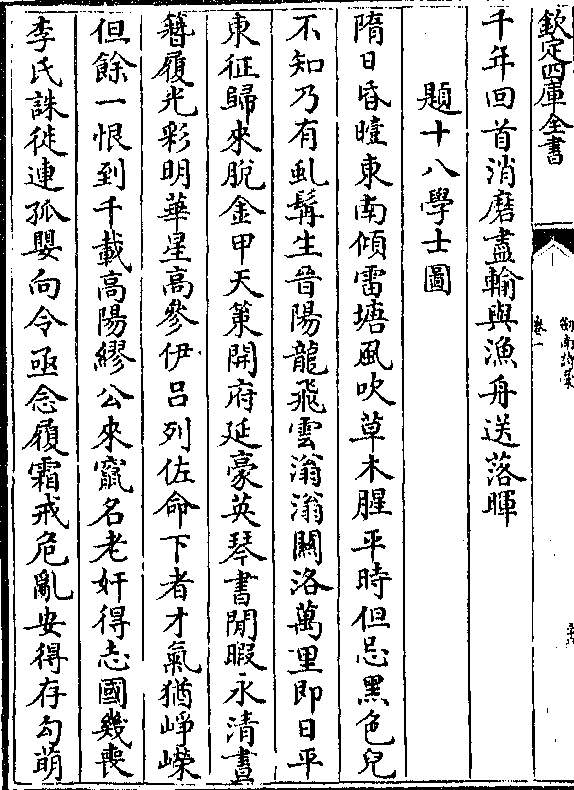 欽定四庫全書
劍南詩稾
卷一
千年回首消磨盡輸與漁舟送落暉
題十八學士圖
隋日昏曀東南傾雷塘風吹草木腥平時但忌黑色兒
不知乃有虬髯生晉陽龍飛雲滃滃關洛萬里即日平
東征歸來脫金甲天策開府延豪英琴書閒暇永清晝
簪履光彩明華星高參伊吕列佐命下者才氣猶崢嶸
但餘一恨到千載高陽繆公來竄名老奸得志國幾喪
李氏誅徙連孤嬰向令亟念履霜戒危亂安得存勾萌